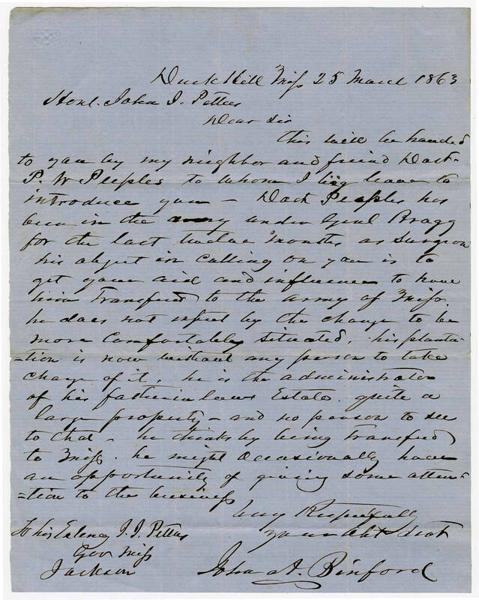 Duck Hill Miss 25 March 1863
Honl. John J. Pettus
Dear Sir
this will be handed
to you by my neighbor and friend Doct-
P. W. Peeples to whom I beg leave to
introduce you – Doct Peoples has
been in the army under Genl Bragg
for the last twelve months as Surgeon
his object in calling on you is to
get your aid and influence to have
him transferd to the army of Miss.
he does not expect by the change to be
more comfortably situated. his planta-
-tion is now without any person to take
charge of it, he is the administrator
of his father in laws Estate. quite a
large property – and no person to see
to that – he thinks by being transferd
to Miss. he might occasionally have
an opportunity of giving some atten-
-tion to the business
very Respectfull
your obt Svt
John A. Binford
To his Exlency J. J. Pettus
Gov Miss
Jackson